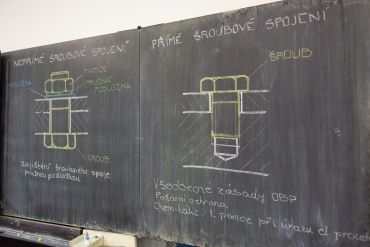 NEPŘÍMÉ ŠROUBOVÉ SPOJENÍ
MATICE
PRUŽNÁ
PODLOŽKA
PODLOŽKA
ŠROUB
zajištění šroubového spoje
pružnou podložkou
PŘÍMÉ ŠROUBOVÉ SPOJENÍ
ŠROUB
Všeobecné zásady OBP
Požární ochrana
1. pomoc při úrazu el. proudem